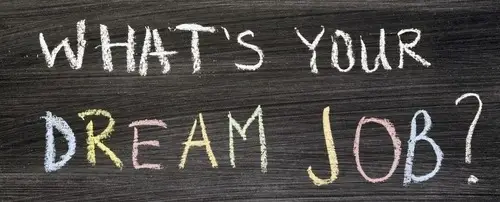 WHAT'S YOUR
DREAM JOB?